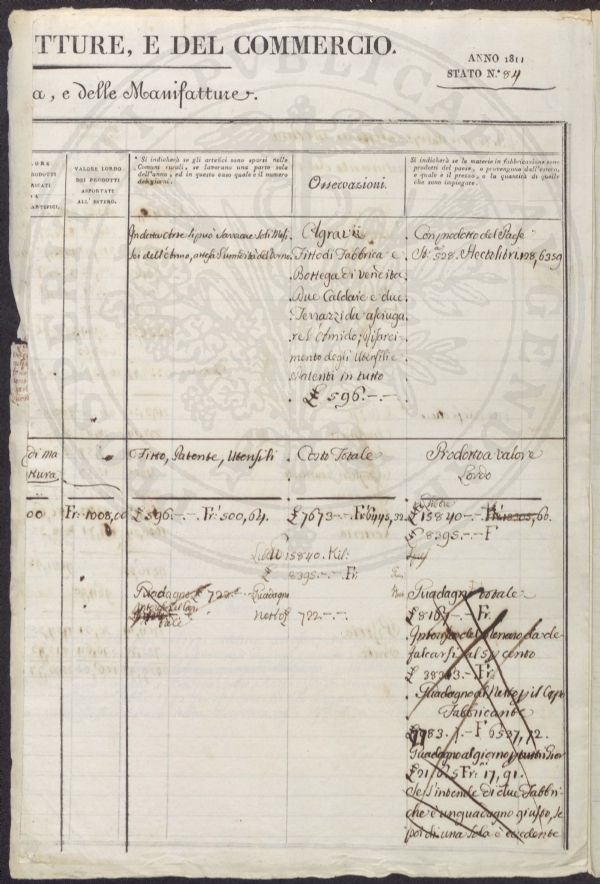 TTURE, E DEL COMMERCIO.
ANNO 1811
STATO N.° 84
a, e delle Manifatture.
ORE
RODOTTI
RICATI
A
ARTEFICI.
VALORE LORDO
DEI PRODOTTI
ASPORTATI
ALL' ESTERO.
* Si indicherà se gli artefici sono sparsi nelle
Comuni rurali, se lavorano una parte sola
dell'anno, ed in questo caso quale è il numero
dei giorni.
Osservazioni.
Si indicherà se le materie in fabbricazione sono
prodotti del paese, o provengono dall'estero,
e quale è il prezzo, e la quantità di quelle
che sono impiegate.
Sei dell'Anno, attesa l'umidità del Verno.
Agravii
Fitto di Fabbrica e
Bottega di vendita
Due Caldaie e due
Terrazzi da asciuga
re l'Amido;
mento degli Utensili e
Patenti in tutto
£ 596.-.-
Con prodotto del Paese
528. Hectolibri 128,6359
di ma
tura
Fitto, Patente, Utensili
Costo Totale
Prodotto a valore
Lordo
00
Fr: 1008,00
£ 596.-.- Fr: 500,64.
£ 7673.-.- Fr: 6445,32.
£ 15840.-.- Fr: 13305,60.
£ 8395.-.- F
15840. Kil:
£ 8395.-.- Fr:
Guadagno £ 722.-
Guadagno
Netto £ 722.-.-
Guadagno totale
£ 8167.-.- Fr:
Interesse del denaro da de
falcarsi al 5 p cento
£ 383.- Fr:
Guadagno al Netto p il Capo
Fabbricante
£ 7783.-.- F 6537,72.
£ 21. Fr: 17,91.
Se s'intende di due Fabbri
che è un guadagno giusto, se
poi di una sola è eccedente